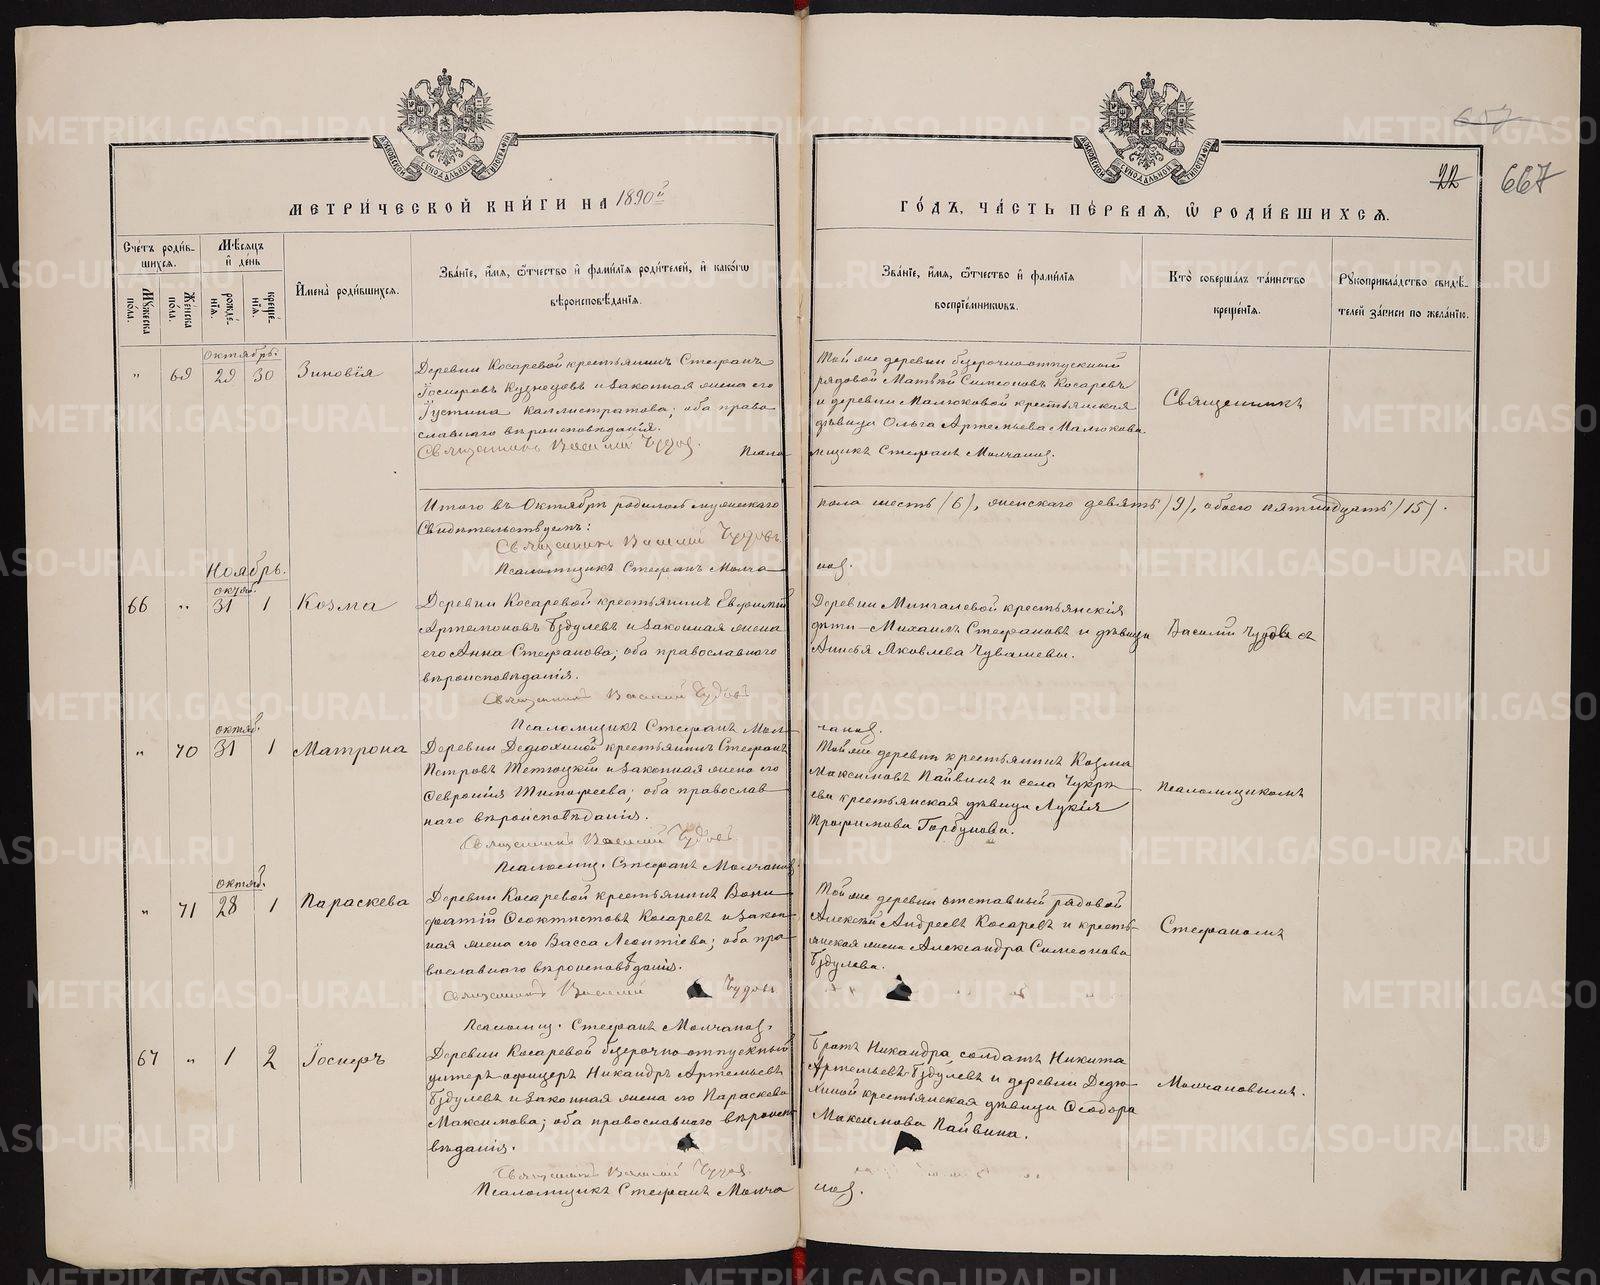 МЕТРИ́ЧЕСКОЙ КНИ́ГИ НА 1890й
ГО́ДЪ, ЧА́СТЬ ПЕ́РВАЯ, Ѽ РОДИ́ВШИХСЯ.
22 667
Счéтъ роди́в-
шихся.
Мужеска пола.
Женска пола.
Мѣсяцъ
и день
рожде-
нія.
креще-
нія.
Имена родившихся.
Званіе, имя, отчество и фамилія родителей, и какогѡ
вѣроисповѣданія.
Званіе, имя, отчество и фамилія
воспріемниковъ.
Кто совершалъ таинство
крещенія.
Рукоприкладство свидѣ-
телей записи по желанію.
Октябрь.
" 69 29 30 Зиновія
Деревни Косаревой крестьянинъ Стефанъ
Іосифовъ Кузнецовъ и законная жена его
Іустина Каллистратова; оба право
славнаго вѣроисповѣданія.
Священникъ Василій Чудов.
Псало
Той же деревни безсрочноотпускный
рядовой Матѳій Симеоновъ Косаревъ
и деревни Малюковой крестьянская
дѣвица Ольга Артемьева Малюкова
мщикъ Стефанъ Молчанов.
Священникъ
Итого въ Октябрѣ родилось мужескаго
пола шесть /6/, женскаго девять /9/, обоего пятнадцать /15/.
Свидѣтельствуемъ:
Священникъ Василій Чудовъ
Псаломщикъ Стефанъ Молча
нов.
Ноябрь.
октяб.
66 " 31 1 Козма
Деревни Косаревой крестьянинъ Евѳимій
Артемоновъ Бздулевъ и законная жена
его Анна Стефанова; оба православнаго
вѣроисповѣданія.
Священникъ Василій Чудовъ
Псаломщикъ Стефанъ Мол
Деревни Мингалевой крестьянскія
дѣти — Михаилъ Стефановъ и дѣвица
Анисья Яковлева Чувашевы.
чанов.
Василій Чудовъ съ
октяб.
" 70 31 1 Матрона
Деревни Дедюхиной крестьянинъ Стефанъ
Петровъ Тетюцкій и законная жена его
Ѳевронія Тимоѳеева; оба православ
наго вѣроисповѣданія.
Священникъ Василій Чудов
Псаломщ. Стефанъ Молчанов.
Той же деревни крестьянинъ Козма
Максимовъ Пайвинъ и села
крестьянская дѣвица Лукія
Трофимова Горбунова.
Псаломщикомъ
октяб.
" 71 28 1 Параскева
Деревни Косаревой крестьянинъ Вони
фатій Ѳеоктистовъ Косаревъ и закон
ная жена его Васса Леонтіева; оба пра
вославнаго вѣроисповѣданія.
Священникъ Василій Чудовъ
Псаломщ. Стефанъ Молчанов.
Той же деревни отставный рядовой
Алексій Андреевъ Косаревъ и кресть
янская жена Александра Симеонова
Бздулева.
Стефаномъ
67 " 1 2 Іосифъ
Деревни Косаревой безсрочно-отпускный
унтеръ-офицеръ Никандръ Артемьевъ
Бздулевъ и законная жена его Параскева
Максимова; оба православнаго вѣроиспо
вѣданія.
Священникъ Василій Чудов.
Псаломщикъ Стефанъ Молча
Братъ Никандра, солдатъ Никита
Артемьевъ Бздулевъ и деревни Дедю
хиной крестьянская дѣвица Ѳеодора
Максимова Пайвина.
нов.
Молчановымъ.
METRIKI.GASO-URAL.RU